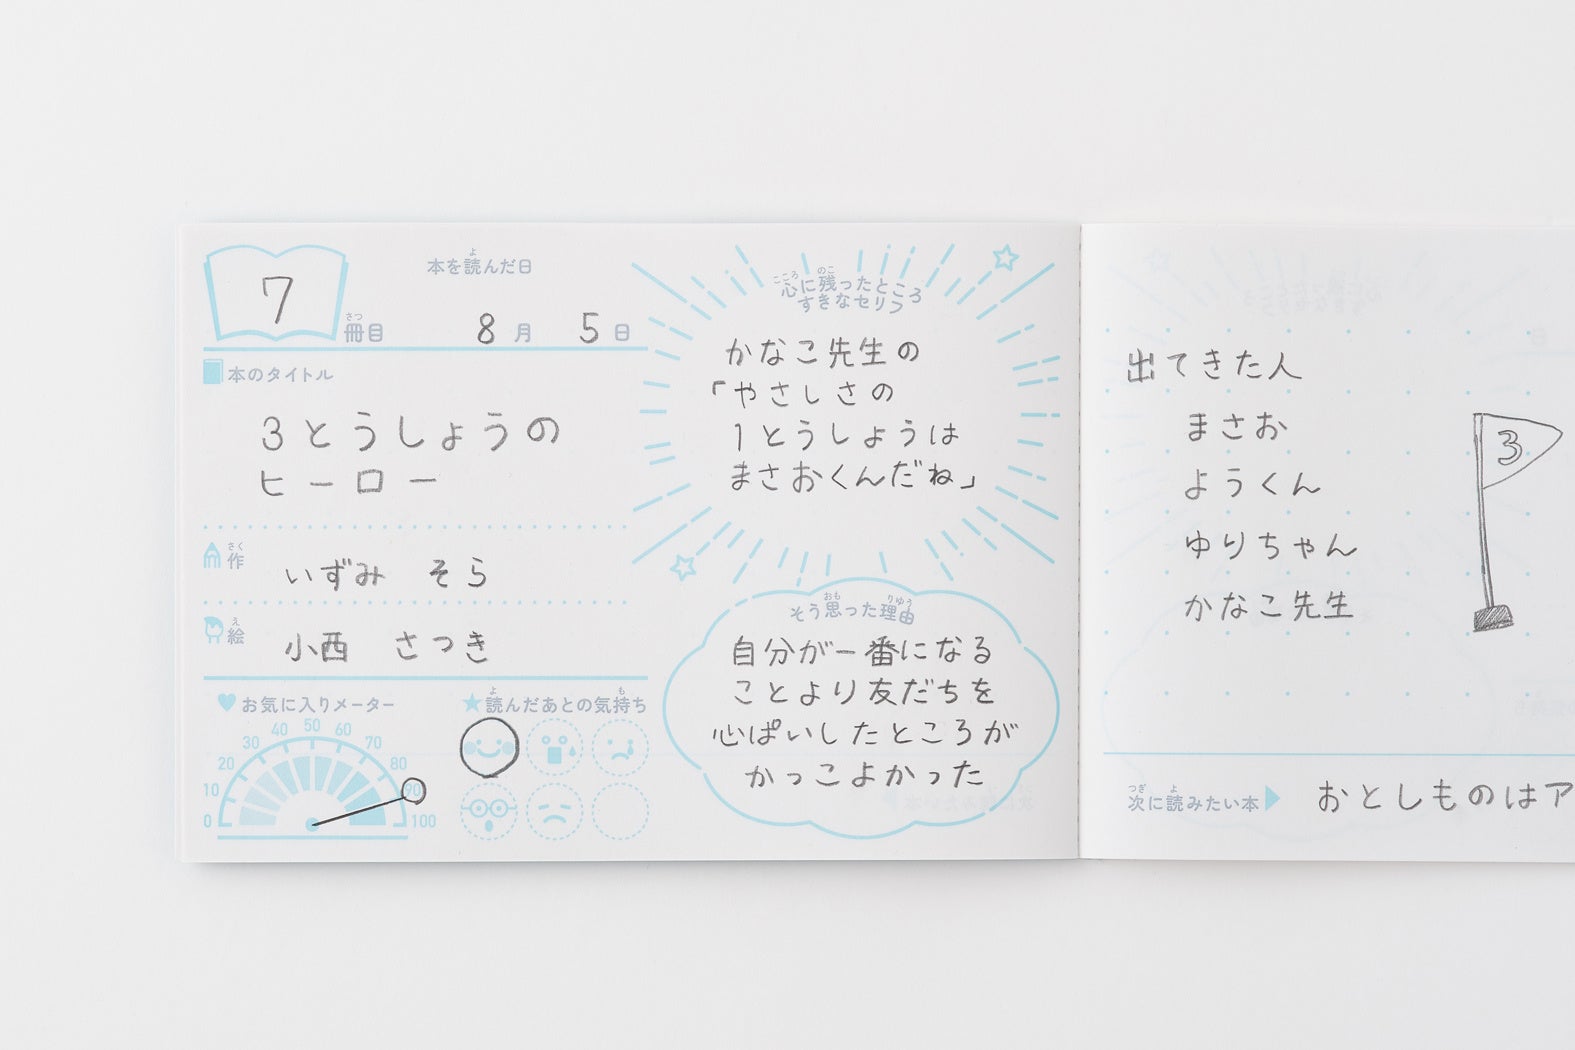 7
さつ
冊目
よ
本を読んだ日
8月 5日
本のタイトル
3とうしょうの
ヒーロー
さく
作
いずみ そら
え
絵
小西 さつき
お気に入りメーター
0 10 20 30 40 50 60 70 80 90 100
よ も
読んだあとの気持ち
こころ のこ
心に残ったところ
すきなセリフ
かなこ先生の
「やさしさの
1とうしょうは
まさおくんだね」
おも りゆう
そう思った理由
自分が一番になる
ことより友だちを
心ぱいしたところが
かっこよかった
出てきた人
まさお
ようくん
ゆりちゃん
かなこ先生
3
つぎ よ
次に読みたい本
おとしものはア